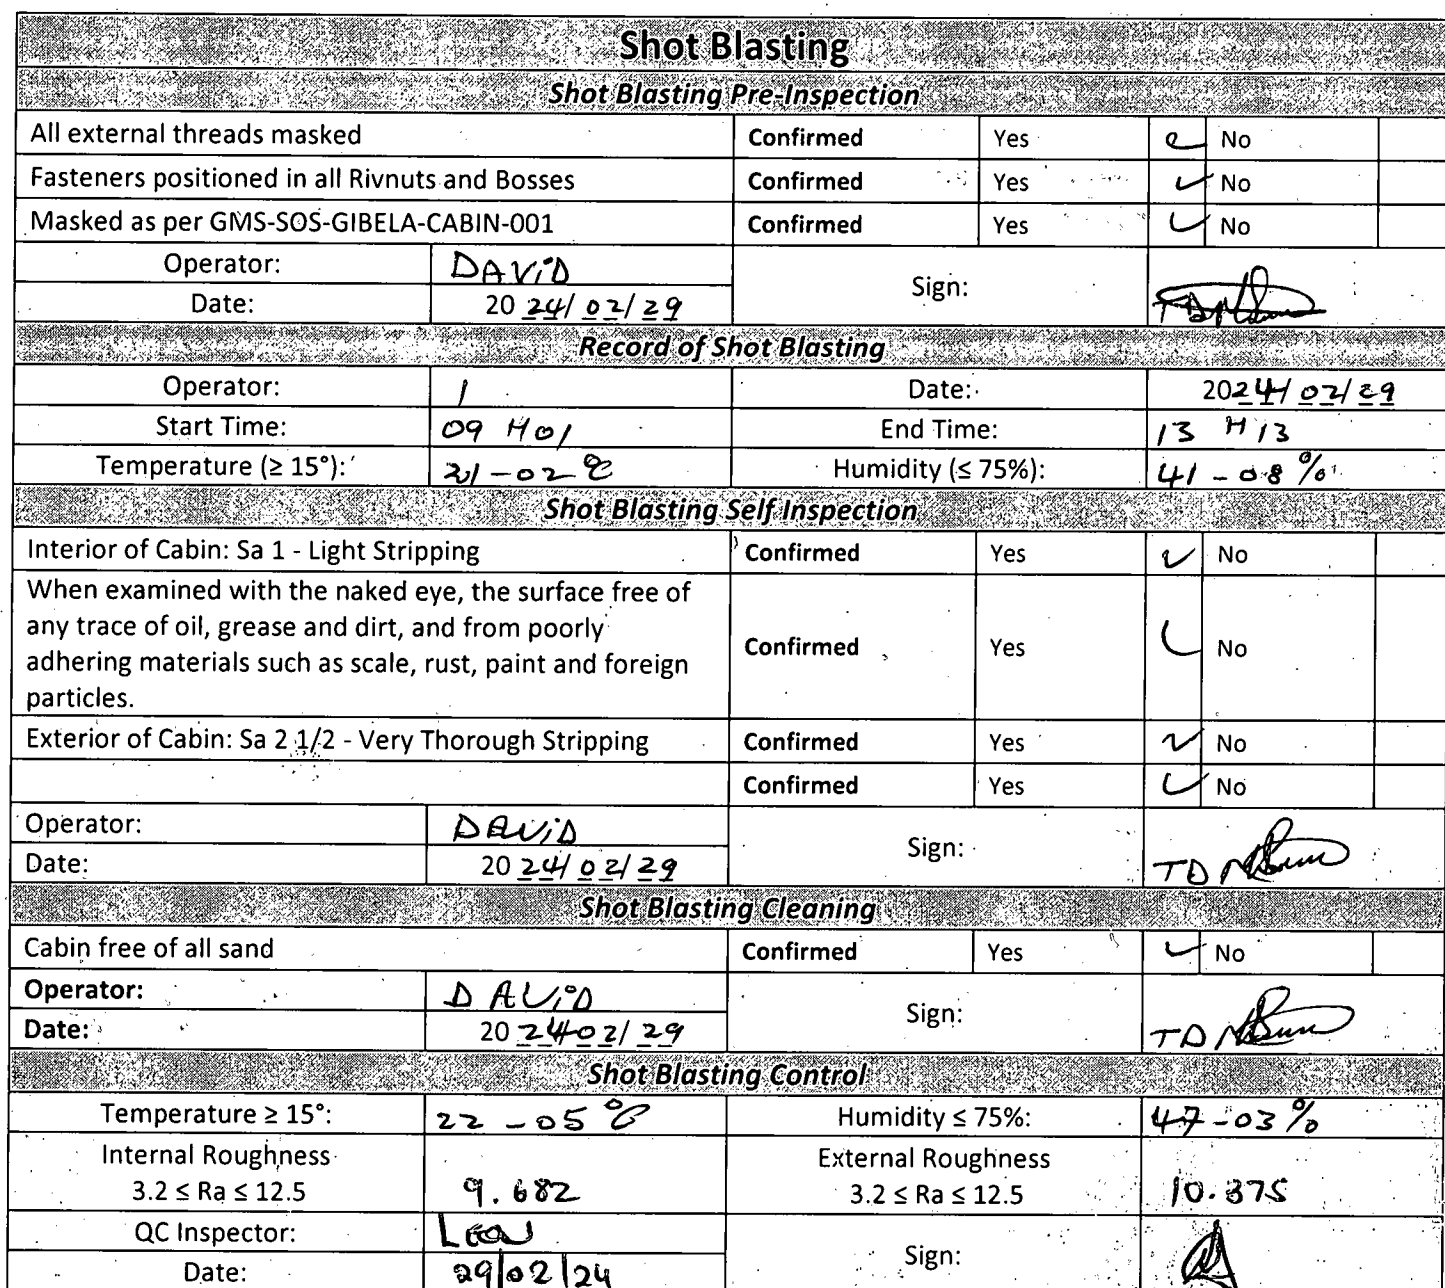 Shot Blasting
Shot Blasting Pre-Inspection
All external threads masked Confirmed Yes ✓ No
Fasteners positioned in all Rivnuts and Bosses Confirmed Yes ✓ No
Masked as per GMS-SOS-GIBELA-CABIN-001 Confirmed Yes ✓ No
Operator: DAViD Sign:
Date: 2024/02/29
Record of Shot Blasting
Operator: 1 Date: 2024/02/29
Start Time: 09 H01 End Time: 13 H13
Temperature (≥ 15°): 21-02 °C Humidity (≤ 75%): 41-08 %
Shot Blasting Self Inspection
Interior of Cabin: Sa 1 - Light Stripping Confirmed Yes ✓ No
When examined with the naked eye, the surface free of
any trace of oil, grease and dirt, and from poorly
adhering materials such as scale, rust, paint and foreign
particles.
Confirmed Yes ✓ No
Exterior of Cabin: Sa 2 1/2 - Very Thorough Stripping Confirmed Yes ✓ No
Confirmed Yes ✓ No
Operator: DAViD Sign: TD
Date: 2024/02/29
Shot Blasting Cleaning
Cabin free of all sand Confirmed Yes ✓ No
Operator: DAViD Sign: TD
Date: 202402/29
Shot Blasting Control
Temperature ≥ 15°: 22-05 °C Humidity ≤ 75%: 47-03 %
Internal Roughness External Roughness
3.2 ≤ Ra ≤ 12.5 9.682 3.2 ≤ Ra ≤ 12.5 10.375
QC Inspector: LEON Sign:
Date: 29/02/24